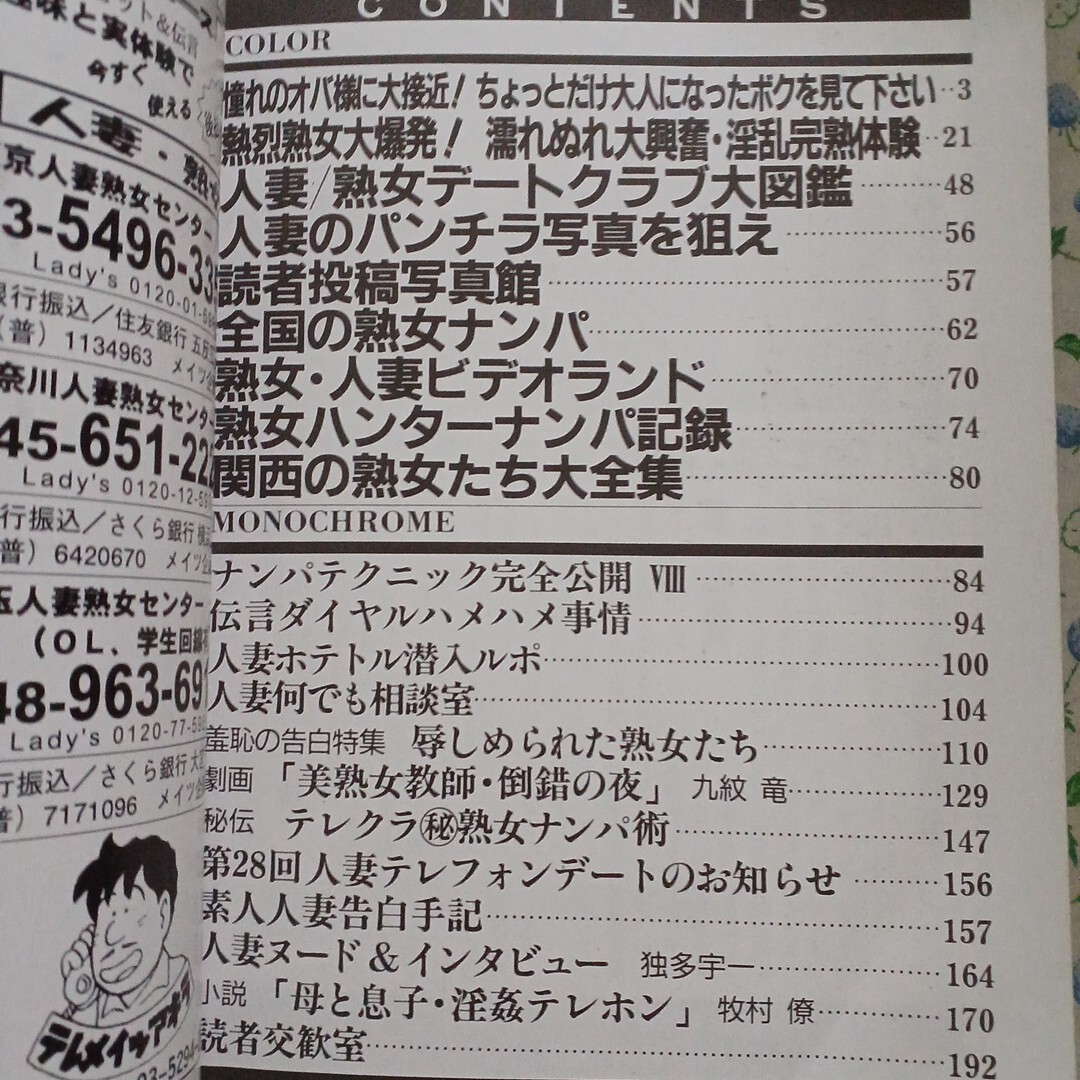 CONTENTS
COLOR
憧れのオバ様に大接近！ ちょっとだけ大人になったボクを見て下さい 3
熱烈熟女大爆発！ 濡れぬれ大興奮・淫乱完熟体験 21
人妻/熟女デートクラブ大図鑑 48
人妻のパンチラ写真を狙え 56
読者投稿写真館 57
全国の熟女ナンパ 62
熟女・人妻ビデオランド 70
熟女ハンターナンパ記録 74
関西の熟女たち大全集 80
MONOCHROME
ナンパテクニック完全公開 Ⅷ 84
伝言ダイヤルハメハメ事情 94
人妻ホテトル潜入ルポ 100
人妻何でも相談室 104
羞恥の告白特集 辱しめられた熟女たち 110
劇画 「美熟女教師・倒錯の夜」 九紋 竜 129
秘伝 テレクラ㊙熟女ナンパ術 147
第28回人妻テレフォンデートのお知らせ 156
素人人妻告白手記 157
人妻ヌード&インタビュー 独多宇一 164
小説 「母と息子・淫姦テレホン」 牧村 僚 170
読者交歓室 192
ット&伝言
味と実体験で
今すぐ
使える
人妻・
京人妻熟女センター
3-5496-33
Lady's 0120-01-
銀行振込／住友銀行 五反
(普) 1134963 メイツ
奈川人妻熟女センター
45-651-22
Lady's 0120-12-
行振込／さくら銀行
普) 6420670 メイツ
玉人妻熟女センター
(OL、学生回線
48-963-691
Lady's 0120-77-
行振込／さくら銀行 大
普) 7171096 メイツ
03-5294-